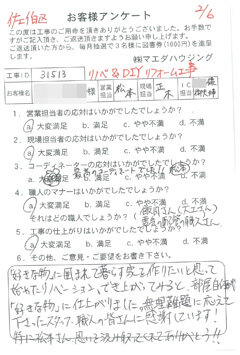 佐伯区
2/6
お客様アンケート
この度は工事のご用命を頂きありがとうございました。お手数で
すがご記入頂き、ご返送頂きますようお願い申し上げます。
ご返送頂いた方から、毎月抽選で3名様に図書券(1000円)を進呈
します。
㈱マエダハウジング
工事ID 31513 リノベ&DIYリフォーム工事
お客様名 様 営業担当 松本 現場担当 正木
1. 営業担当者の応対はいかがでしたでしょうか?
ⓐ 大変満足 b. 満足 c. やや不満 d. 不満
2. 現場担当者の応対はいかがでしたでしょうか?
ⓐ 大変満足 b. 満足 c. やや不満 d. 不満
3. コーディネーターの応対はいかがでしたでしょうか?
ⓐ 大変満足 b. 満足 c. やや不満 d. 不満
4. 職人のマナーはいかがでしたでしょうか?
ⓐ 大変満足 b. 満足 c. やや不満 d. 不満
それはどの職人でしょうか?
5. 工事の仕上がりはいかがでしたでしょうか?
ⓐ 大変満足 b. 満足 c. やや不満 d. 不満
6. その他、ご意見・ご要望をお書き下さい。
「好きな物に囲まれて暮らす家」を作りたいと思って
始めたリノベーション。でき上がってみると、部屋自体が
「好きな物」に仕上がりました。無理難題に応えて
下さったスタッフ、職人の皆さんに感謝しています!
特に松本さん 思いを汲み取ってくれてありがとう!!